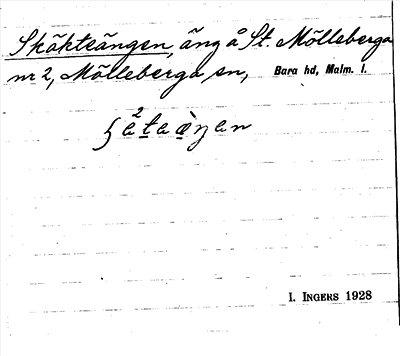 Skäkteängen, äng å St. Mölleberga
nr 2, Mölleberga sn, Bara hd, Malm. l.
I. INGERS 1928